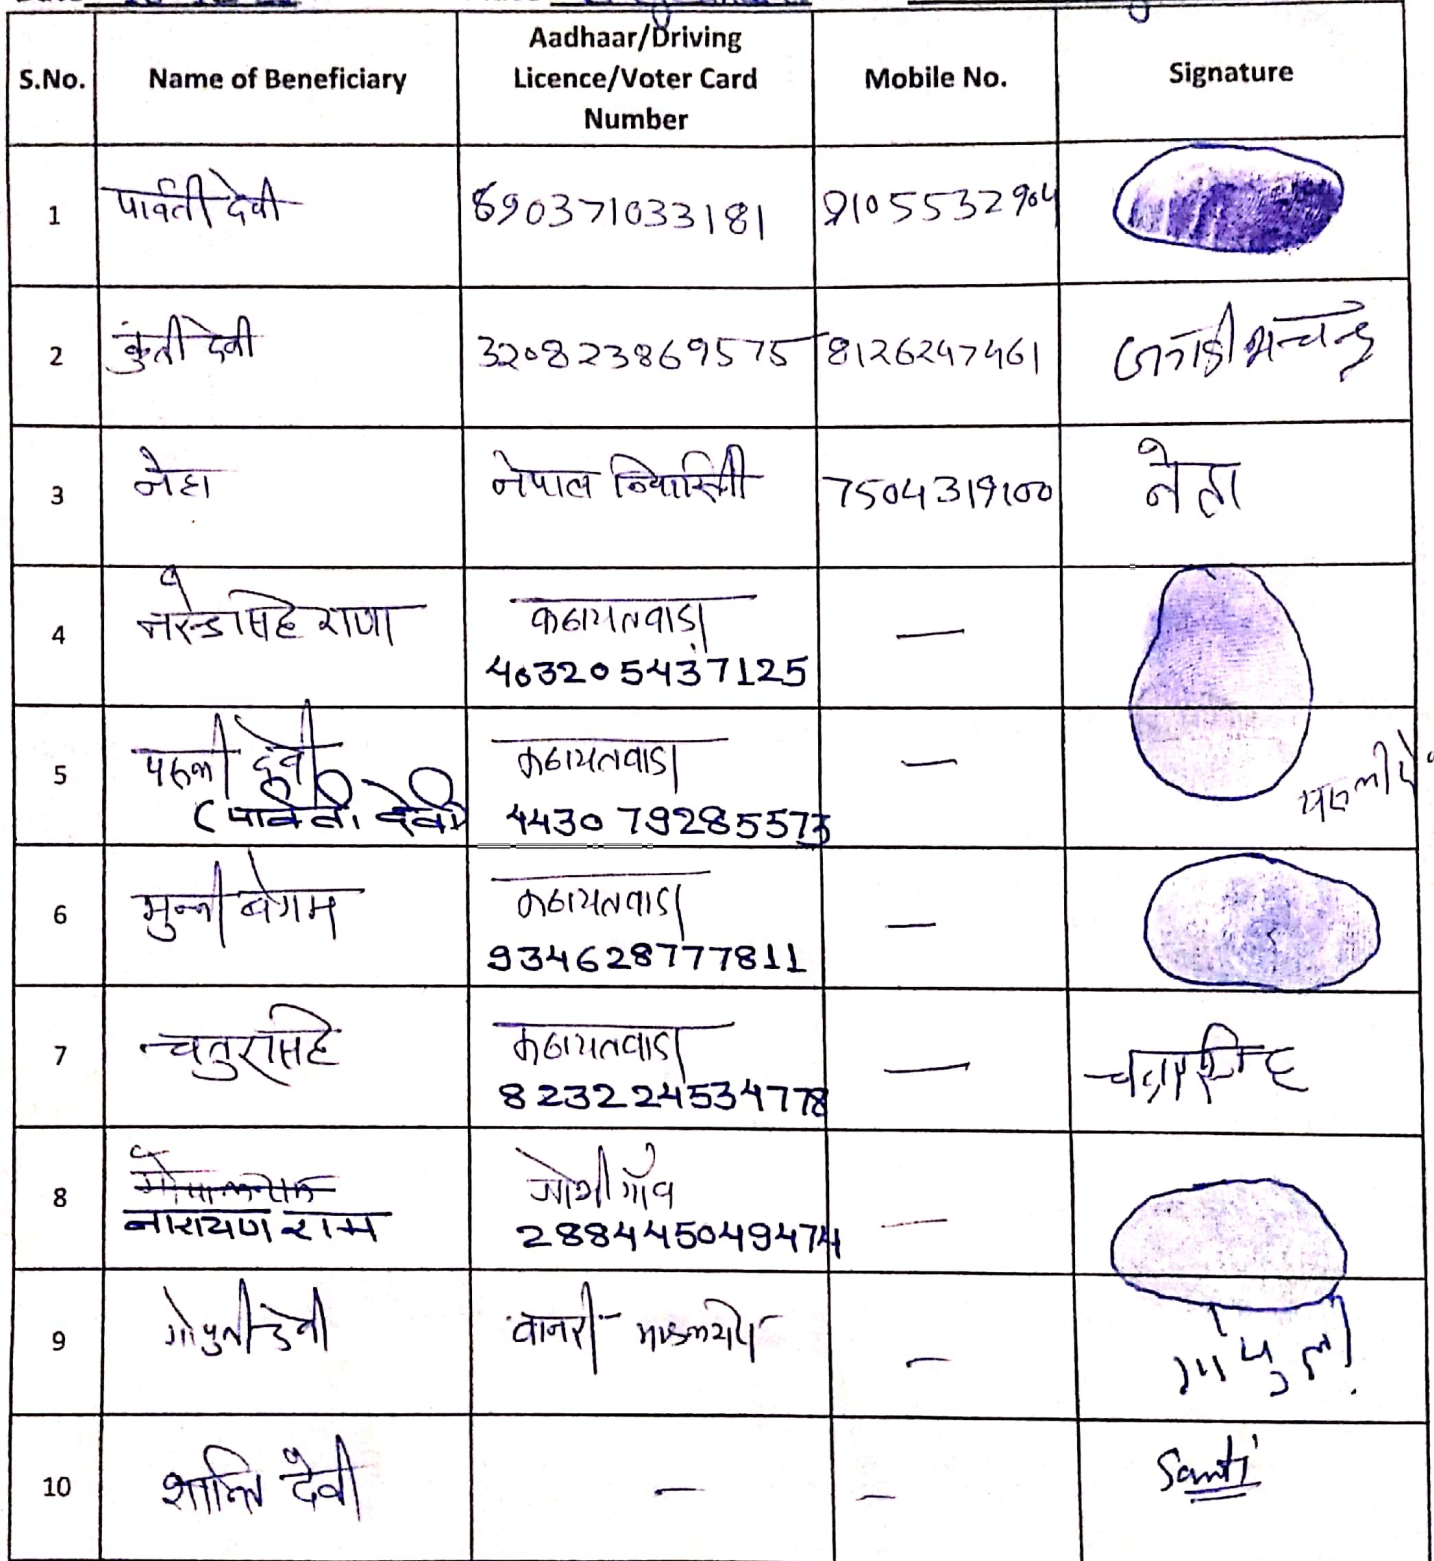 S.No. Name of Beneficiary Aadhaar/Driving Licence/Voter Card Number Mobile No. Signature
1 पार्वती देवी 690371033181 9105532904
2 कुंती देवी 320823869575 8126247461
3 नेहा नेपाल निवासिनी 7504319100 नेहा
4 नरेन्द्र सिंह राणा कठायतवाड़ा —
403205437125
5 परूली देवी कठायतवाडा —
(पार्वती देवी) 443079285573 परूली दे
6 मुन्नी बेगम कठायतवाडा —
934628777811
7 चतुर सिंह कठायतवाडा —
823224534778
8 जोशीगाँव —
नारायण राम 288445049474
9 गोपुली देवी वानरी —
10 शान्ति देवी — — Santi